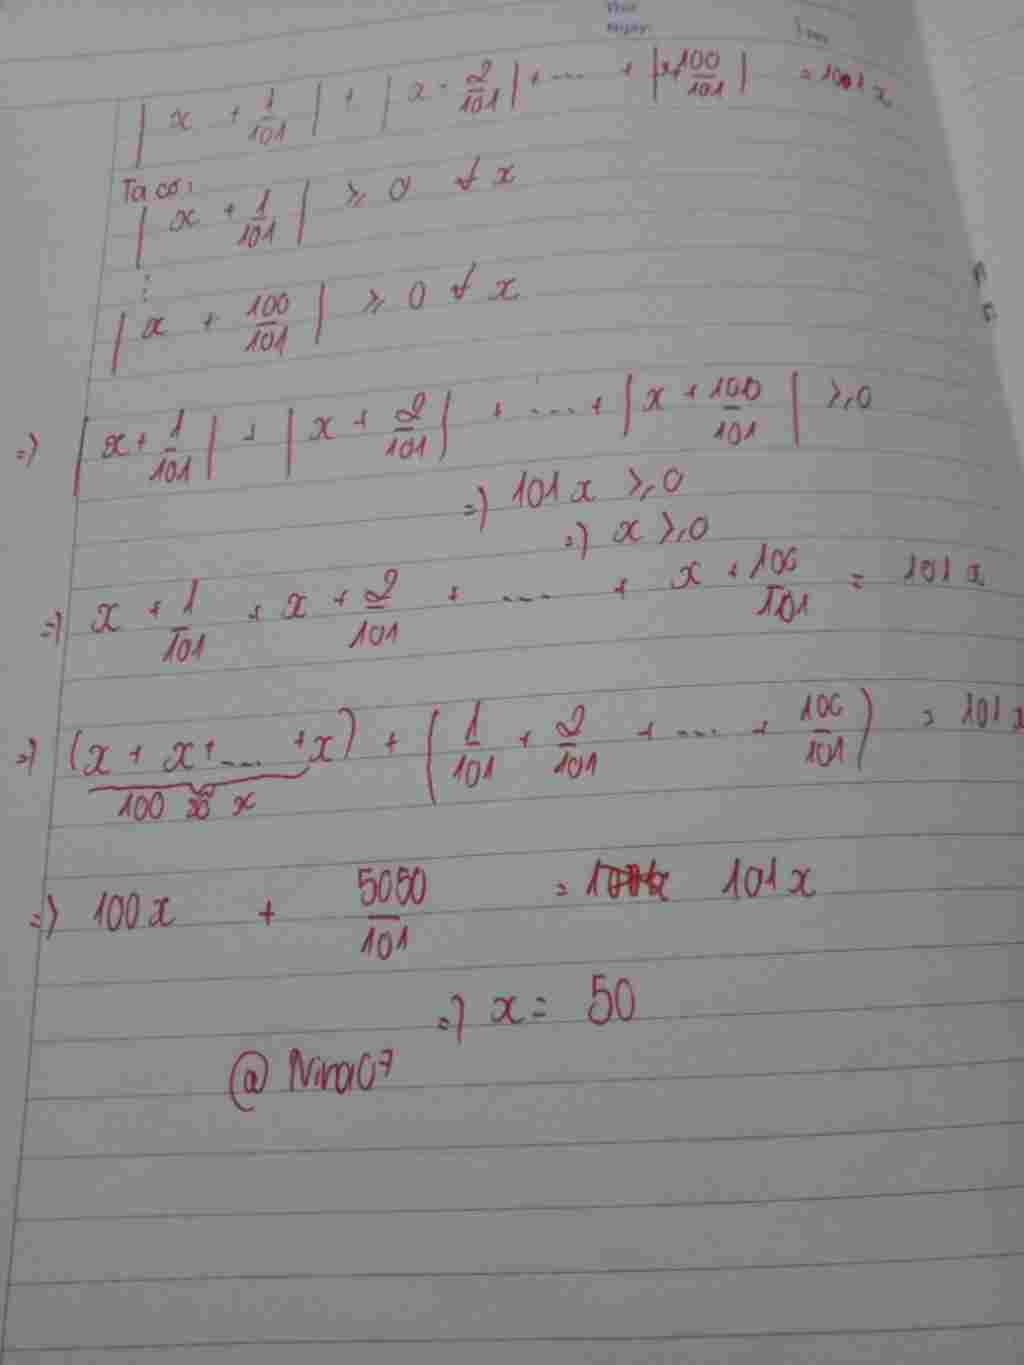 |x + 1/101| + |x + 2/101| + .... + |x + 100/101| = 101x
Ta có:
|x + 1/101| ≥ 0 ∀ x
⋮
|x + 100/101| ≥ 0 ∀ x
=> |x + 1/101| + |x + 2/101| + .... + |x + 100/101| ≥ 0
=> 101x ≥ 0
=> x ≥ 0
=> x + 1/101 + x + 2/101 + .... + x + 100/101 = 101x
=> (x + x + .... + x) + (1/101 + 2/101 + .... + 100/101) = 101x
100 số x
=> 100x + 5050/101 = 101x
=> x = 50